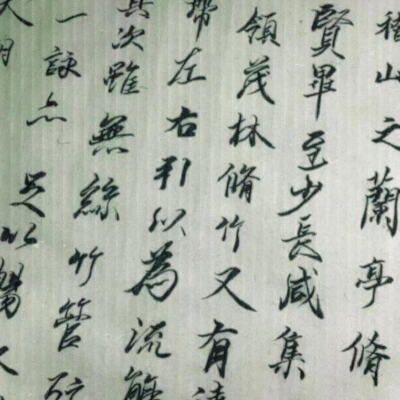 稽山之蘭亭脩
賢畢至少長咸集
領茂林脩竹又有清
帶左右引以為流觴
其次雖無絲竹管
一詠亦足以暢